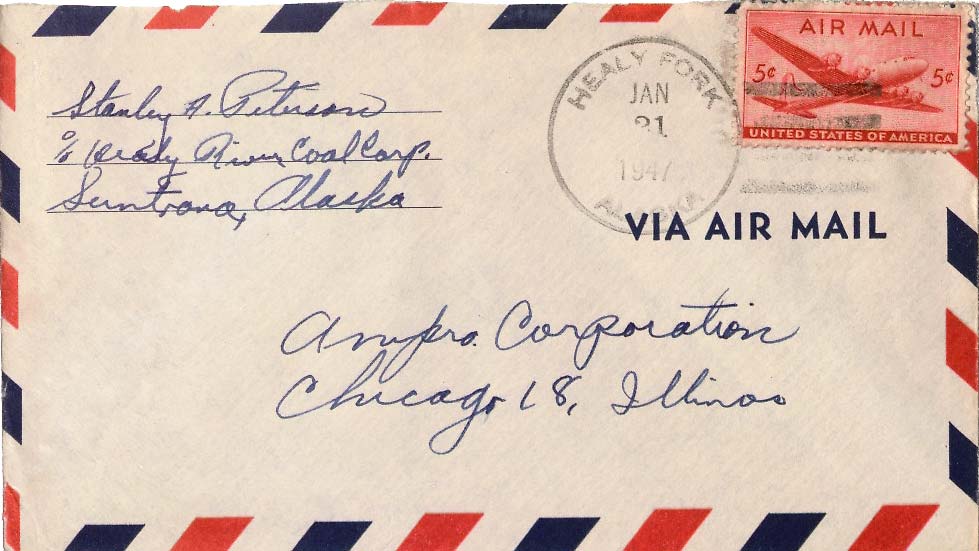 Stanley A. Peterson
c/o Healy River Coal Corp.
Suntrana, Alaska
HEALY FORK
JAN
21
1947
ALASKA
AIR MAIL
5¢ 5¢
UNITED STATES OF AMERICA
VIA AIR MAIL
Ampro Corporation
Chicago 18, Illinos